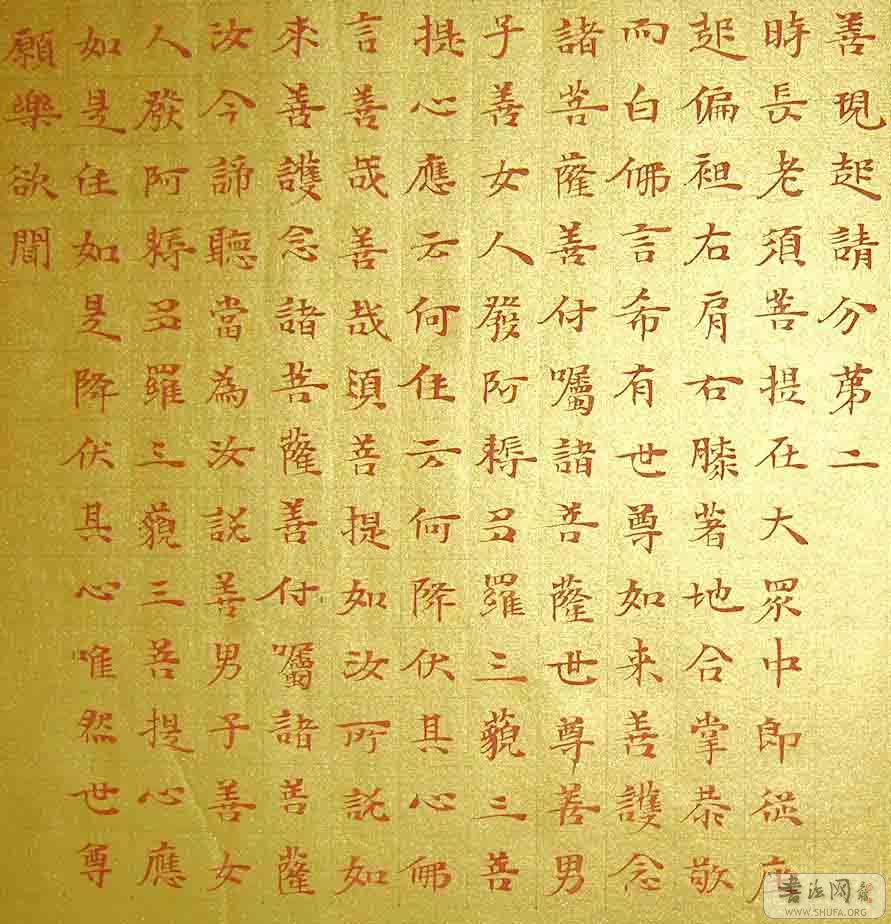 善現起請分第二
時長老須菩提在大眾中即從座
起偏袒右肩右膝著地合掌恭敬
而白佛言希有世尊如来善護念
諸菩薩善付囑諸菩薩世尊善男
子善女人發阿耨多羅三藐三菩
提心應云何住云何降伏其心佛
言善哉善哉須菩提如汝所説如
来善護念諸菩薩善付囑諸菩薩
汝今諦聽當為汝説善男子善女
人發阿耨多羅三藐三菩提心應
如是住如是降伏其心唯然世尊
願樂欲聞
书法网
WWW.SHUFA.ORG